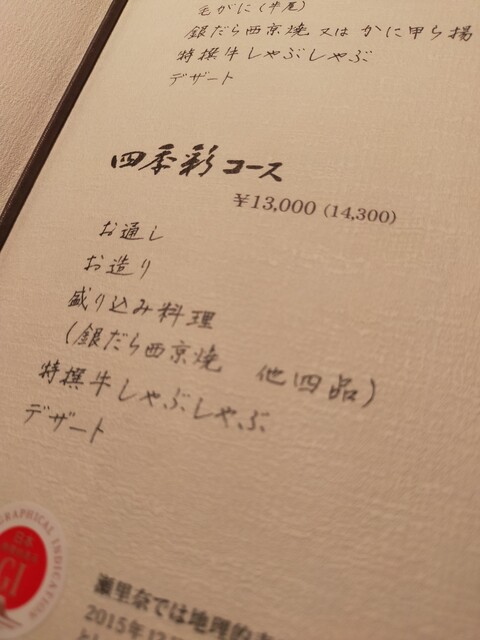 毛がに(半尾)
銀だら西京焼 又は かに甲ら揚
特撰牛しゃぶしゃぶ
デザート
四季彩コース
¥13,000 (14,300)
お通し
お造り
盛り込み料理
(銀だら西京焼 他四品)
特撰牛しゃぶしゃぶ
デザート
GRAPHICAL INDICATION
日本
GI
瀬里奈では地理的
2015年12